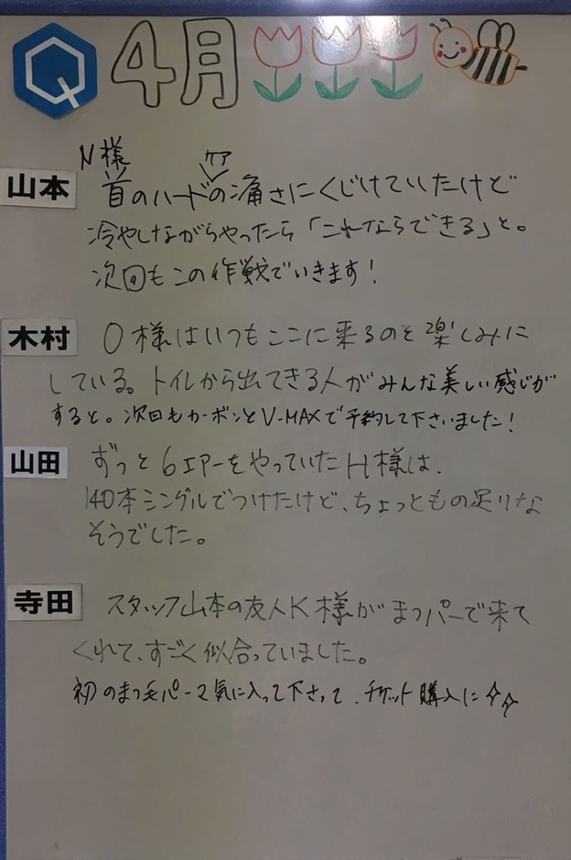 Q 4月
N様 ケア
山本 首のハードの痛さにくじけていたけど
冷やしながらやったら「これならできる」と。
次回もこの作戦でいきます!
木村 O様はいつもここに来るのを楽しみに
している。トイレから出てきる人がみんな美しい感じが
すると。次回もカーボンとV-MAXで予約して下さいました!
山田 ずっと6エアーをやっていたH様は、
140本シングルでつけたけど、ちょっともの足りな
そうでした。
寺田 スタッフ山本の友人K様がまつパーで来て
くれて、すごく似合っていました。
初のまつ毛パーマ気に入って下さって、チケット購入に